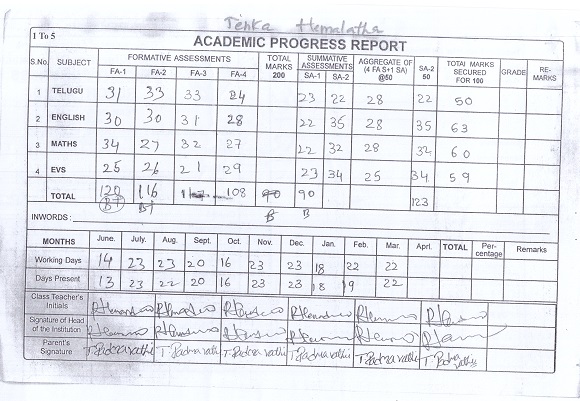 Tenka Hemalatha
1 To 5
ACADEMIC PROGRESS REPORT
S.No. SUBJECT FORMATIVE ASSESSMENTS TOTAL MARKS 200 SUMMATIVE ASSESSMENTS AGGREGATE OF (4 FA S+1 SA) @50 SA-2 50 TOTAL MARKS SECURED FOR 100 GRADE RE-MARKS
FA-1 FA-2 FA-3 FA-4 SA-1 SA-2
1 TELUGU 31 33 33 24 23 22 28 22 50
2 ENGLISH 30 30 31 28 22 35 28 35 63
3 MATHS 34 27 32 27 22 32 28 32 60
4 EVS 25 26 21 29 23 34 25 34 59
TOTAL 120 116 117 108 90 90 123
B+ B+ B B
INWORDS :
MONTHS June. July. Aug. Sept. Oct. Nov. Dec. Jan. Feb. Mar. Aprl. TOTAL Per-centage Remarks
Working Days 14 23 23 20 16 23 23 18 22 22
Days Present 13 23 22 20 16 23 23 18 19 22
Class Teacher's Initials
Signature of Head of the Institution
Parent's Signature T. Padmavathi T. Padmavathi T. Padmavathi T. Padmavathi T. Padmavathi T. Padmavathi